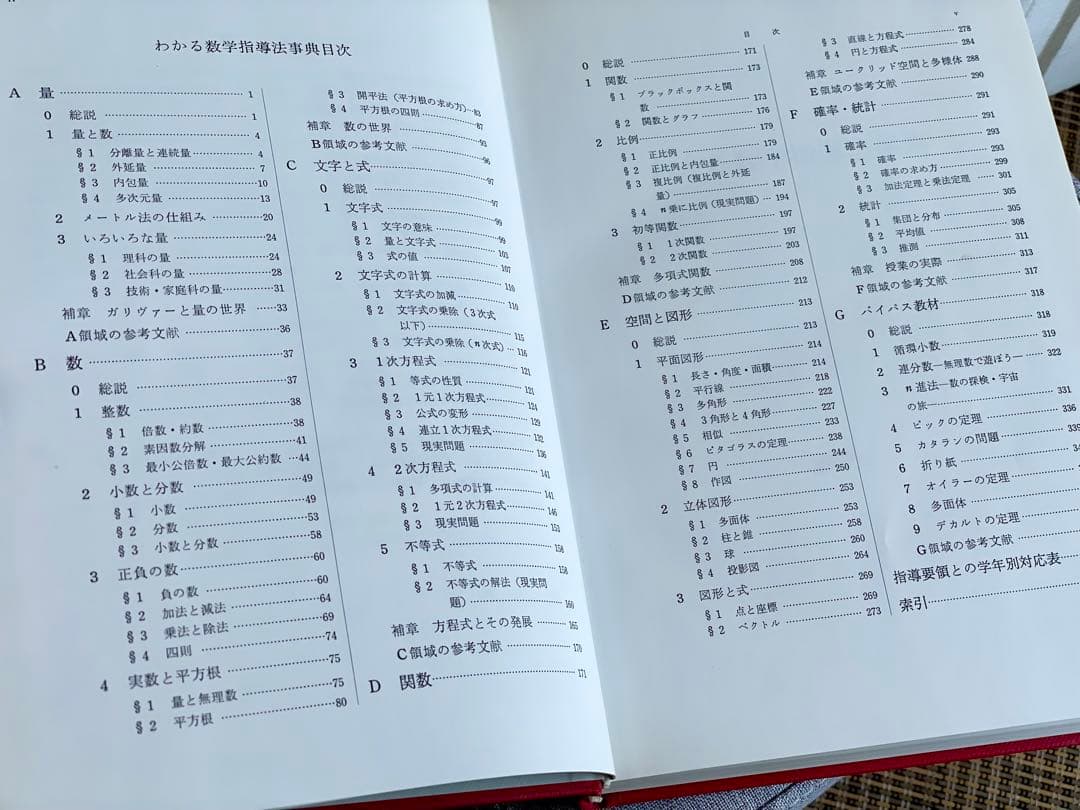 わかる数学指導法事典目次
A 量 1
0 総説 1
1 量と数 4
§1 分離量と連続量 4
§2 外延量 7
§3 内包量 10
§4 多次元量 13
2 メートル法の仕組み 20
3 いろいろな量 24
§1 理科の量 24
§2 社会科の量 28
§3 技術・家庭科の量 31
補章 ガリヴァーと量の世界 33
A領域の参考文献 36
B 数 37
0 総説 37
1 整数 38
§1 倍数・約数 38
§2 素因数分解 41
§3 最小公倍数・最大公約数 44
2 小数と分数 49
§1 小数 49
§2 分数 53
§3 小数と分数 58
3 正負の数 60
§1 負の数 60
§2 加法と減法 64
§3 乗法と除法 69
§4 四則 74
4 実数と平方根 75
§1 量と無理数 75
§2 平方根 80
§3 開平法(平方根の求め方) 83
§4 平方根の四則 87
補章 数の世界 93
B領域の参考文献 96
C 文字と式 97
0 総説 97
1 文字式 99
§1 文字の意味 99
§2 量と文字式 103
§3 式の値 107
2 文字式の計算 110
§1 文字式の加減 110
§2 文字式の乗除(3次式
以下) 115
§3 文字式の乗除(n次式) 116
3 1次方程式 121
§1 等式の性質 121
§2 1元1次方程式 124
§3 公式の変形 129
§4 連立1次方程式 132
§5 現実問題 136
4 2次方程式 141
§1 多項式の計算 141
§2 1元2次方程式 146
§3 現実問題 153
5 不等式 158
§1 不等式 158
§2 不等式の解法(現実問
題) 160
補章 方程式とその発展 165
C領域の参考文献 170
D 関数 171
目 次 v
0 総説 171
1 関数 173
§1 ブラックボックスと関
数 173
§2 関数とグラフ 176
2 比例 179
§1 正比例 179
§2 正比例と内包量 184
§3 複比例(複比例と外延
量) 187
§4 n乗に比例(現実問題) 194
3 初等関数 197
§1 1次関数 197
§2 2次関数 203
補章 多項式関数 208
D領域の参考文献 212
E 空間と図形 213
0 総説 213
1 平面図形 214
§1 長さ・角度・面積 214
§2 平行線 218
§3 多角形 222
§4 3角形と4角形 227
§5 相似 233
§6 ピタゴラスの定理 238
§7 円 244
§8 作図 250
2 立体図形 253
§1 多面体 253
§2 柱と錐 258
§3 球 260
§4 投影図 264
3 図形と式 269
§1 点と座標 269
§2 ベクトル 273
§3 直線と方程式 278
§4 円と方程式 284
補章 ユークリッド空間と多様体 288
E領域の参考文献 290
F 確率・統計 291
0 総説 291
1 確率 293
§1 確率 293
§2 確率の求め方 299
§3 加法定理と乗法定理 301
2 統計 305
§1 集団と分布 305
§2 平均値 308
§3 推測 311
補章 授業の実際 313
F領域の参考文献 317
G バイパス教材 318
0 総説 318
1 循環小数 319
2 連分数—無理数で遊ぼう— 322
3 n進法—数の探検・宇宙
の旅— 331
4 ピックの定理 336
5 カタランの問題 339
6 折り紙
7 オイラーの定理
8 多面体
9 デカルトの定理
G領域の参考文献
指導要領との学年別対応表
索引